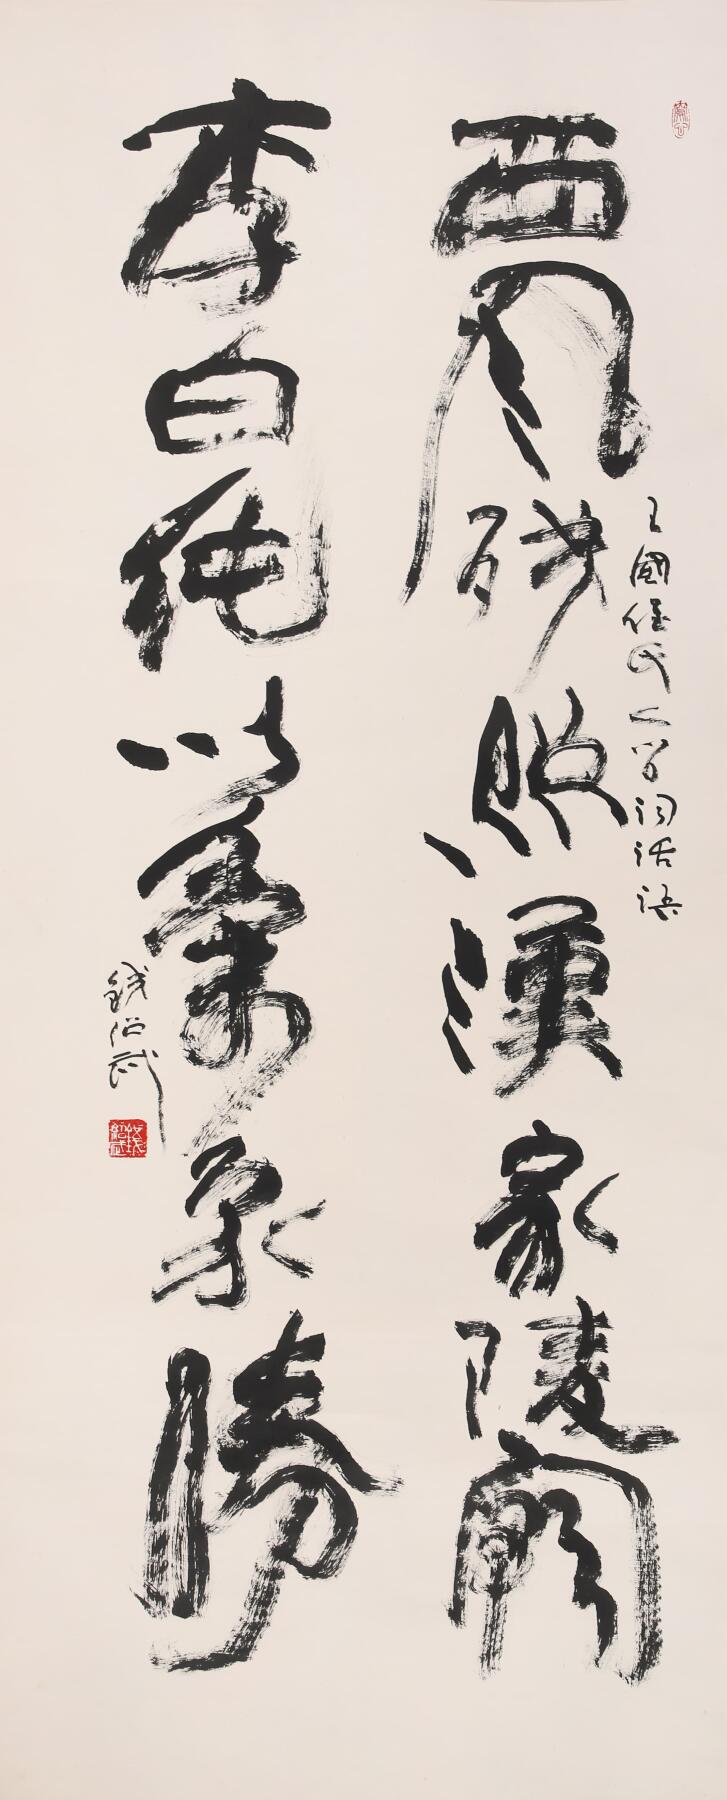 西风残照汉家陵阙
王国维氏人间词话语
李白纯以气象胜
钱绍武